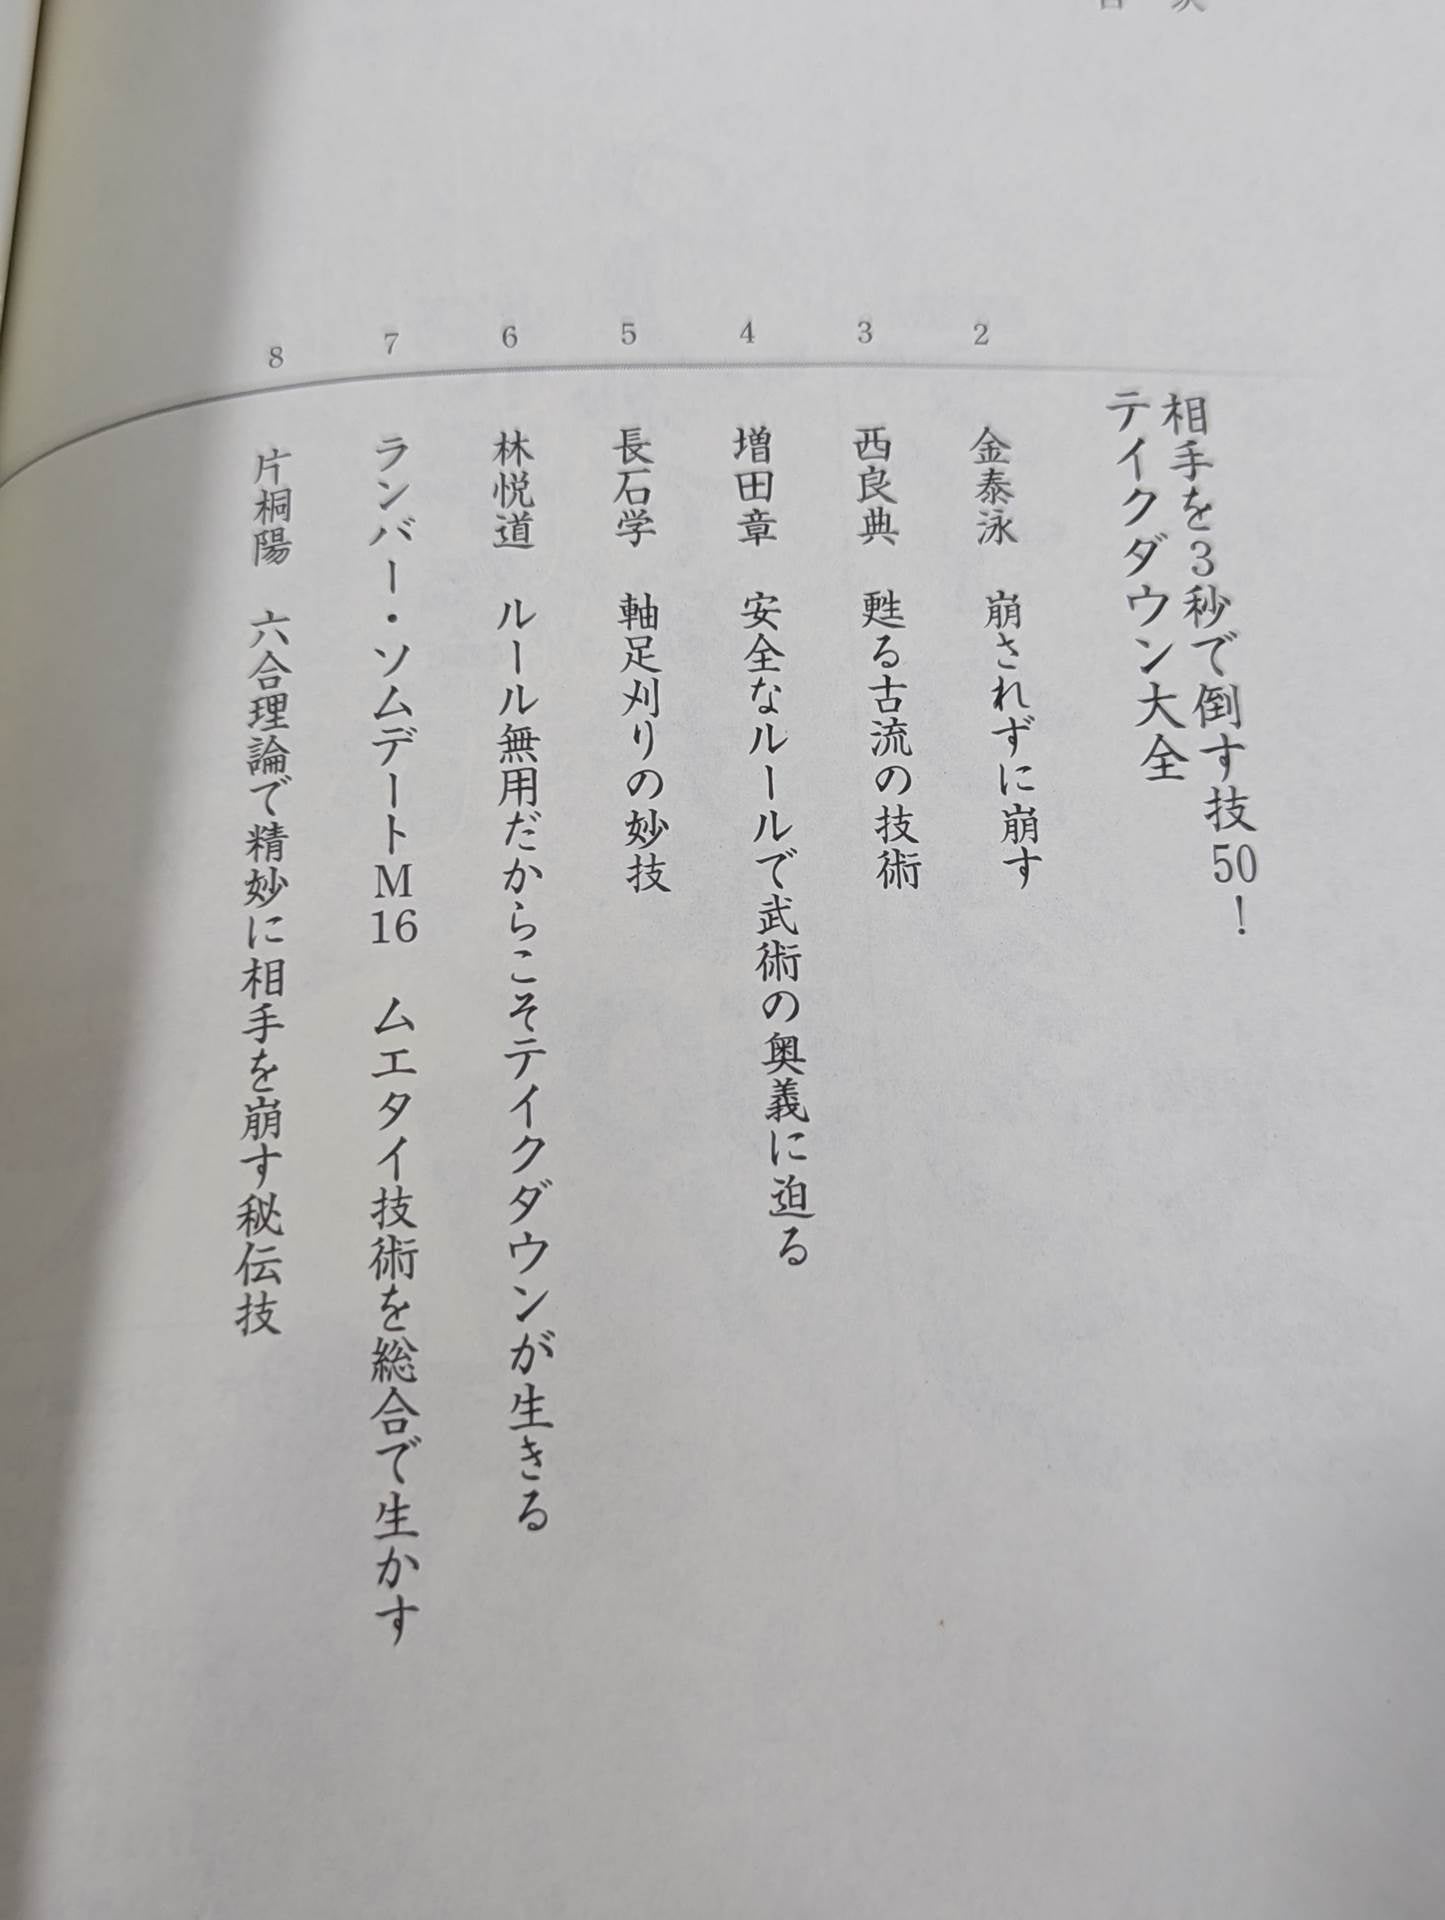 目次
相手を3秒で倒す技50!
テイクダウン大全
2 金泰泳 崩されずに崩す
3 西良典 甦る古流の技術
4 増田章 安全なルールで武術の奥義に迫る
5 長石学 軸足刈りの妙技
6 林悦道 ルール無用だからこそテイクダウンが生きる
7 ランバー・ソムデートM16 ムエタイ技術を総合で生かす
8 片桐陽 六合理論で精妙に相手を崩す秘伝技